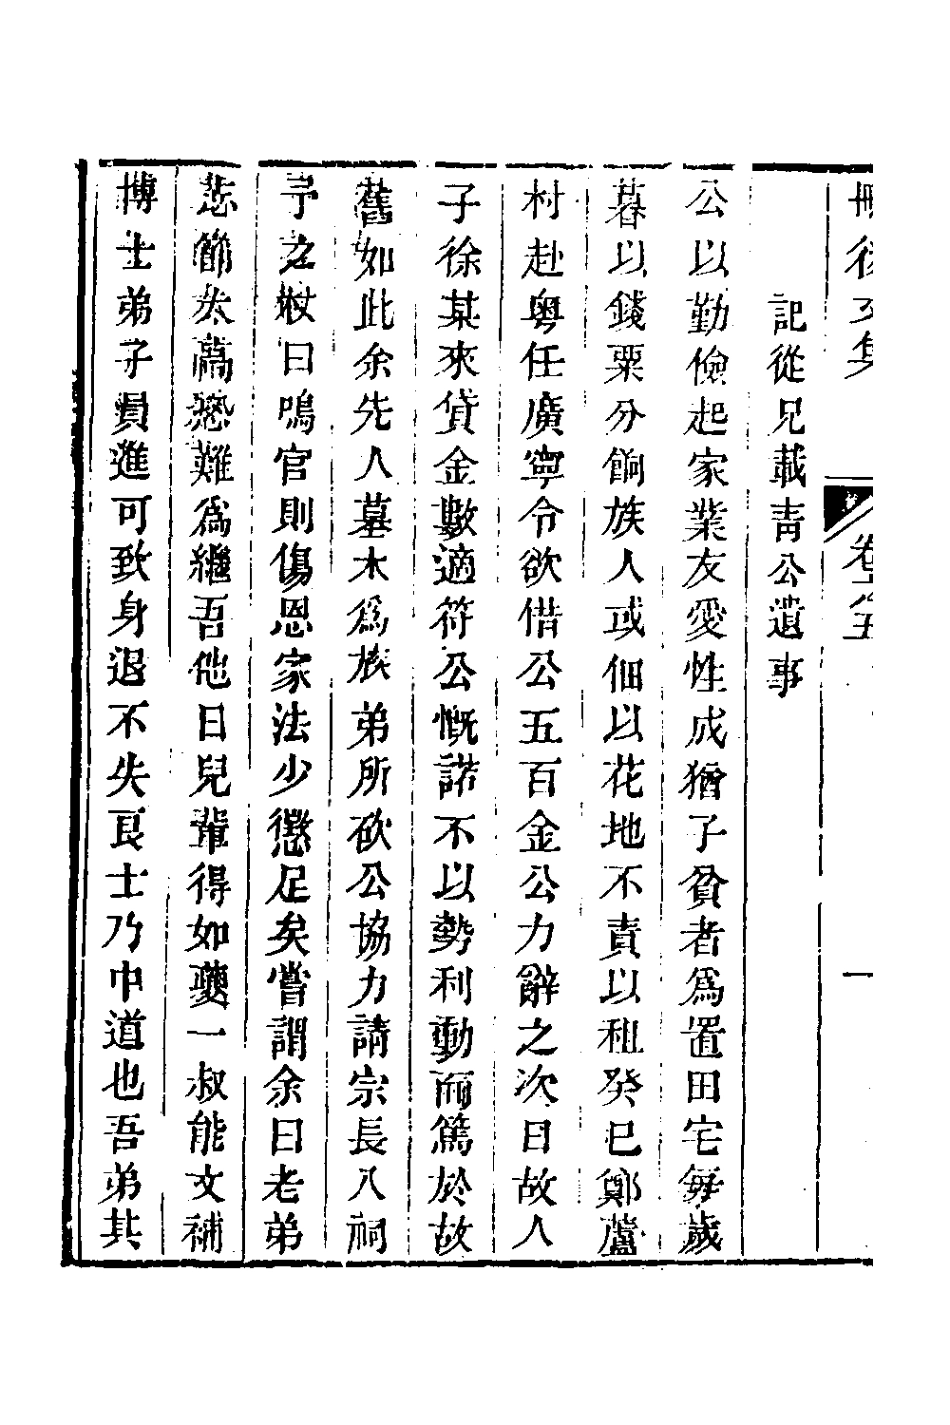 文集 卷之五 一
記從兄載青公遺事
公以勤儉起家業友愛性成猶子貧者爲置田宅每歲
暮以錢粟分餉族人或佃以花地不責以租癸巳鄭蘆
村赴粵任廣寧令欲借公五百金公力辭之次日故人
子徐某來貸金數適符公慨諾不以勢利動而篤於故
舊如此余先人墓木爲族弟所砍公協力請宗長入祠
予之杖曰鳴官則傷恩家法少懲足矣嘗謂余曰老弟
志節太高恐難爲繼吾他日兒輩得如夔一叔能文補
博士弟子員進可致身退不失良士乃中道也吾弟其